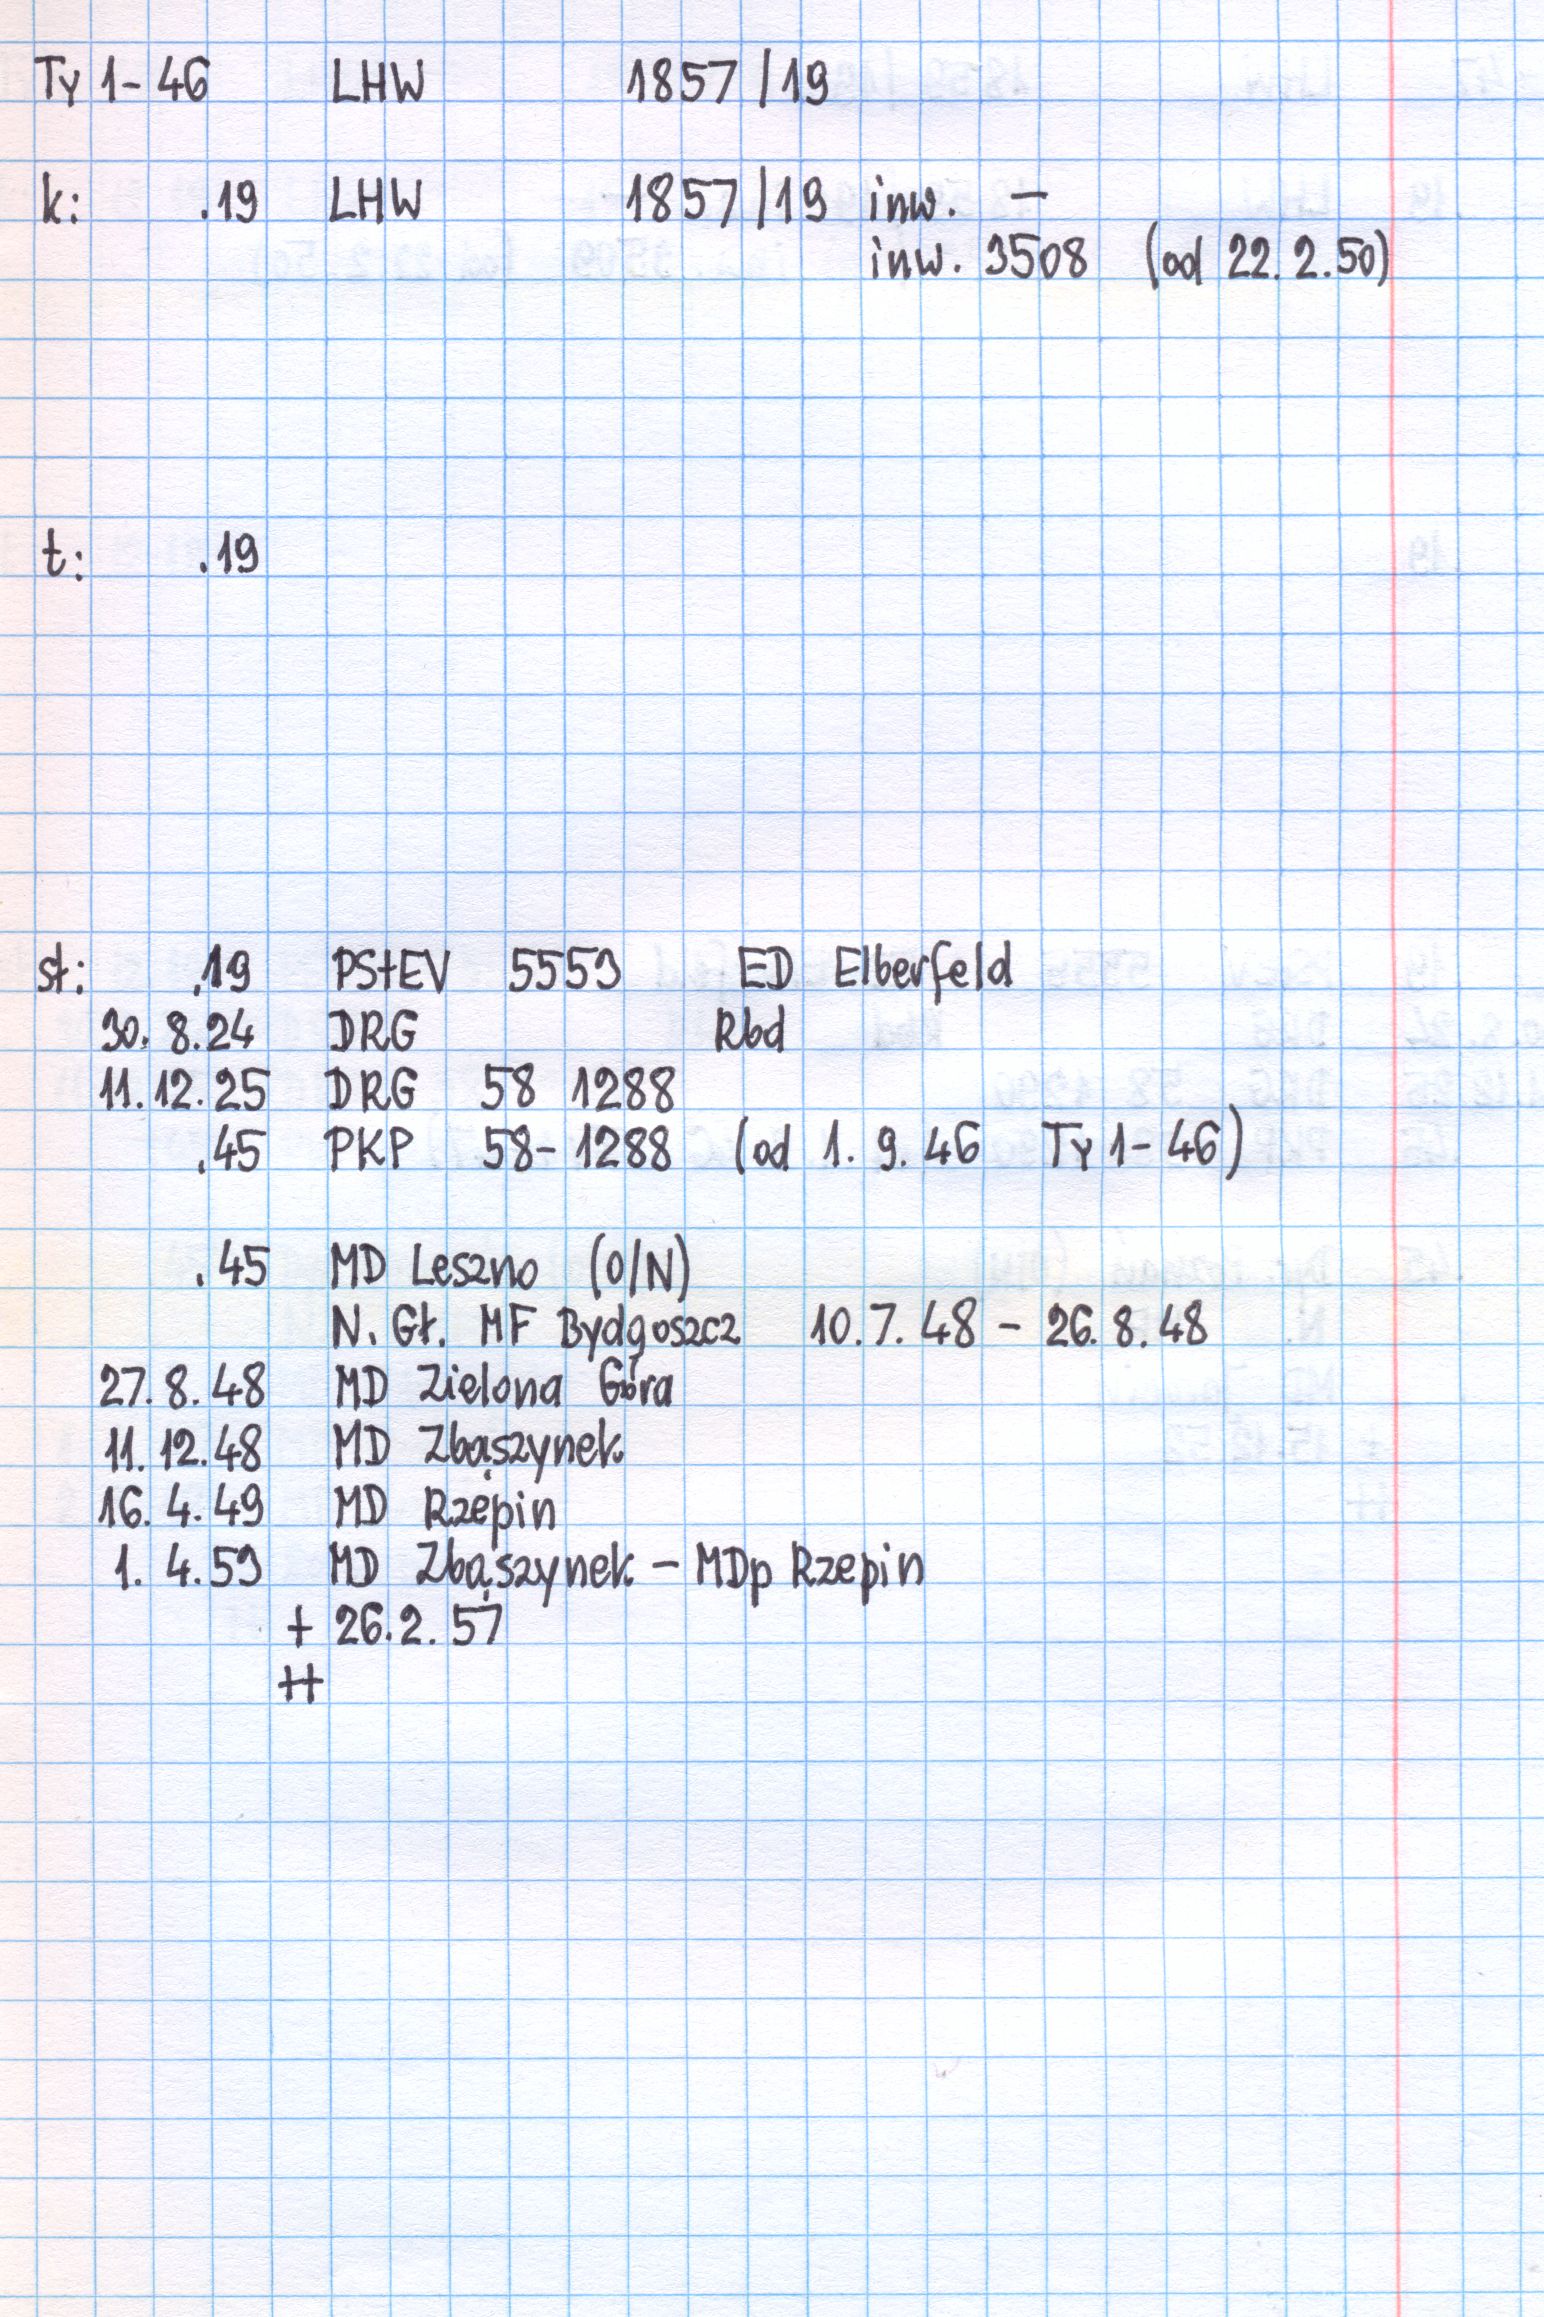 Ty 1-46 LHW 1857/19
k: .19 LHW 1857/19 inw. –
inw. 3508 (od 22.2.50)
t: .19
st: .19 PStEV 5559 ED Elberfeld
30.8.24 DRG Rbd
11.12.25 DRG 58 1288
.45 PKP 58-1288 (od 1.9.46 Ty 1-46)
.45 MD Leszno (O/N)
N. Gł. MF Bydgoszcz 10.7.48 – 26.8.48
27.8.48 MD Zielona Góra
11.12.48 MD Zbąszynek
16.4.49 MD Rzepin
1.4.59 MD Zbąszynek – MDp Rzepin
+ 26.2.57
++